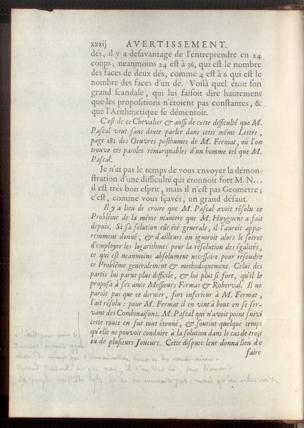 xxxij AVERTISSEMENT.
dés, il y a desavantage de l'entreprendre en 24
coups; neanmoins 24 est à 36, qui est le nombre
des faces de deux dés, comme 4 est à 6 qui est le
nombre des faces d'un dé. Voilà quel étoit son
grand scandale, qui lui faisoit dire hautement
que les propositions n'étoient pas constantes, &
que l'Arithmetique se démentoit.
C'est de ce Chevalier & aussi de cette difficulté que M.
Pascal veut sans doute parler dans cette même Lettre,
page 181 des Oeuvres posthumes de M. Fermat, où l'on
trouve ces paroles remarquables d'un homme tel que M.
Pascal.
Je n'ai pas le temps de vous envoyer la démon-
stration d'une difficulté qui étonnoit fort M. N...
il est très bon esprit, mais il n'est pas Geometre;
c'est, comme vous sçavés, un grand défaut.
Il y a lieu de croire que M. Pascal avoit résolu ce
Problême de la même maniere que M. Huygens a fait
depuis. Si sa solution eût été generale, il l'auroit appa-
remment donné, & d'ailleurs on ignoroit alors le secret
d'employer les logarithmes pour la résolution des égalités,
ce qui est neanmoins absolument necessaire pour résoudre
ce Problême generalement & methodiquement. Celui des
partis lui parut plus difficile, & lui plut si fort, qu'il le
proposa à ses amis Messieurs Fermat & Roberval. Il ne
paroît pas que ce dernier, fort inferieur à M. Fermat,
l'ait résolu: pour M. Fermat il en vint à bout en se ser-
vant des Combinaisons. M. Pascal qui n'avoit point suivi
cette route en fut tout étonné, & soutint quelque temps
qu'elle ne pouvoit conduire à la solution dans le cas de trois
ou de plusieurs Joueurs. Cette dispute leur donna lieu de
faire